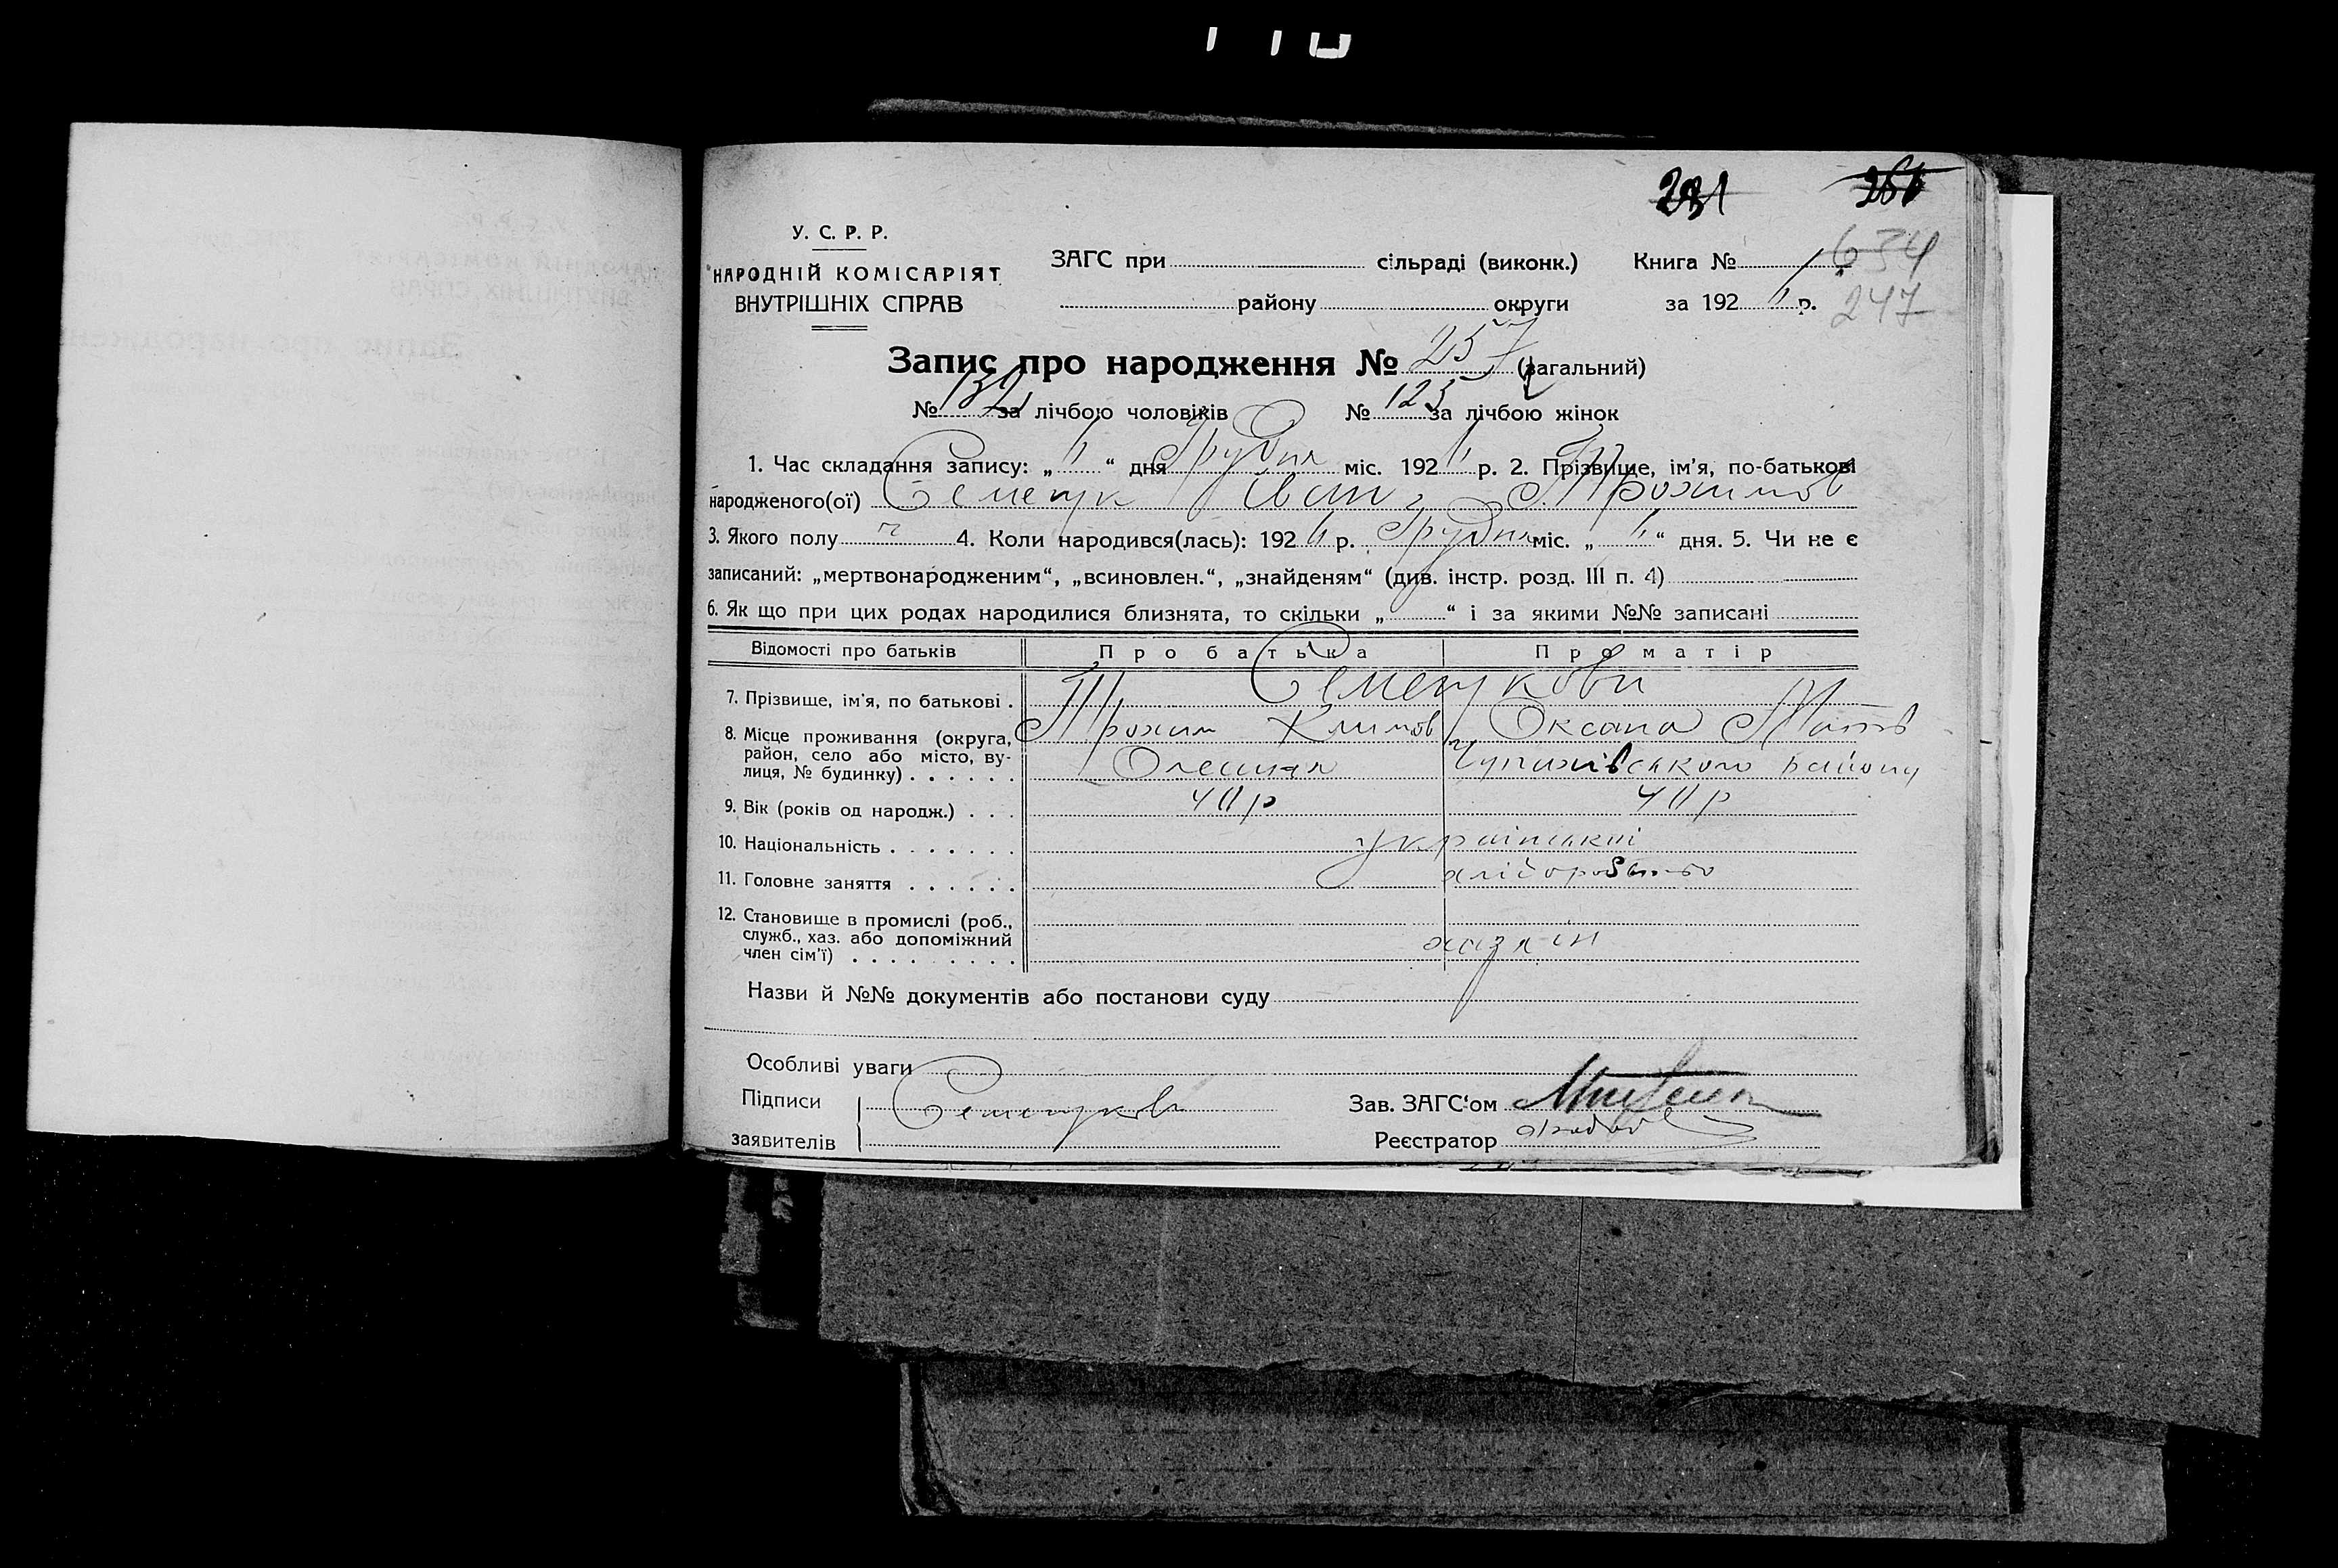 У. С. Р. Р.
НАРОДНІЙ КОМІСАРІЯТ
ВНУТРІШНІХ СПРАВ
ЗАГС при сільраді (виконк.) Книга №
району округи за 192 р.
634
247
Запис про народження № 257 (загальний)
№ 132 за лічбою чоловіків № 125 за лічбою жінок
1. Час складання запису: „ “ дня Грудня міс. 192 р. 2. Прізвище, ім'я, по-батькові
народженого(ої) Семенук Іван Трохимов
3. Якого полу ч 4. Коли народився(лась): 192 р. Грудня міс. „ “ дня. 5. Чи не є
записаний: „мертвонародженим“, „всиновлен.“, „знайденям“ (див. інстр. розд. III п. 4)
6. Як що при цих родах народилися близнята, то скільки „ “ і за якими №№ записані
Відомості про батьків Про батька Про матір
7. Прізвище, ім'я, по батькові . Семенукови
Трохим Климов Оксана
8. Місце проживання (округа,
район, село або місто, ву-
лиця, № будинку) . . . . . . району
9. Вік (років од народж.) . . .
10. Національність . . . . . . . українські
11. Головне заняття . . . . . . хліборобство
12. Становище в промислі (роб.,
служб., хаз. або допоміжний
член сім'ї) . . . . . . . . . хазяїн
Назви й №№ документів або постанови суду
Особливі уваги
Підписи Семенуков Зав. ЗАГС'ом
заявителів Реєстратор